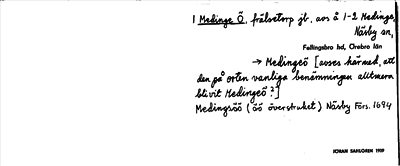 1 Medinge Ö, frälsetorp jb, avs å 1-2 Medinge,
Näsby sn,
Fellingsbro hd, Örebro län
→ Medingeö [avses härmed, att
den på orten vanliga benämningen alltmera
blivit Medingeö?]
Medingsöö (öö överstruket) Näsby Förs. 1694
JÖRAN SAHLGREN 1929